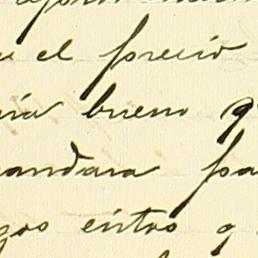 el precio
ria bueno q
andara pa
gos entos q